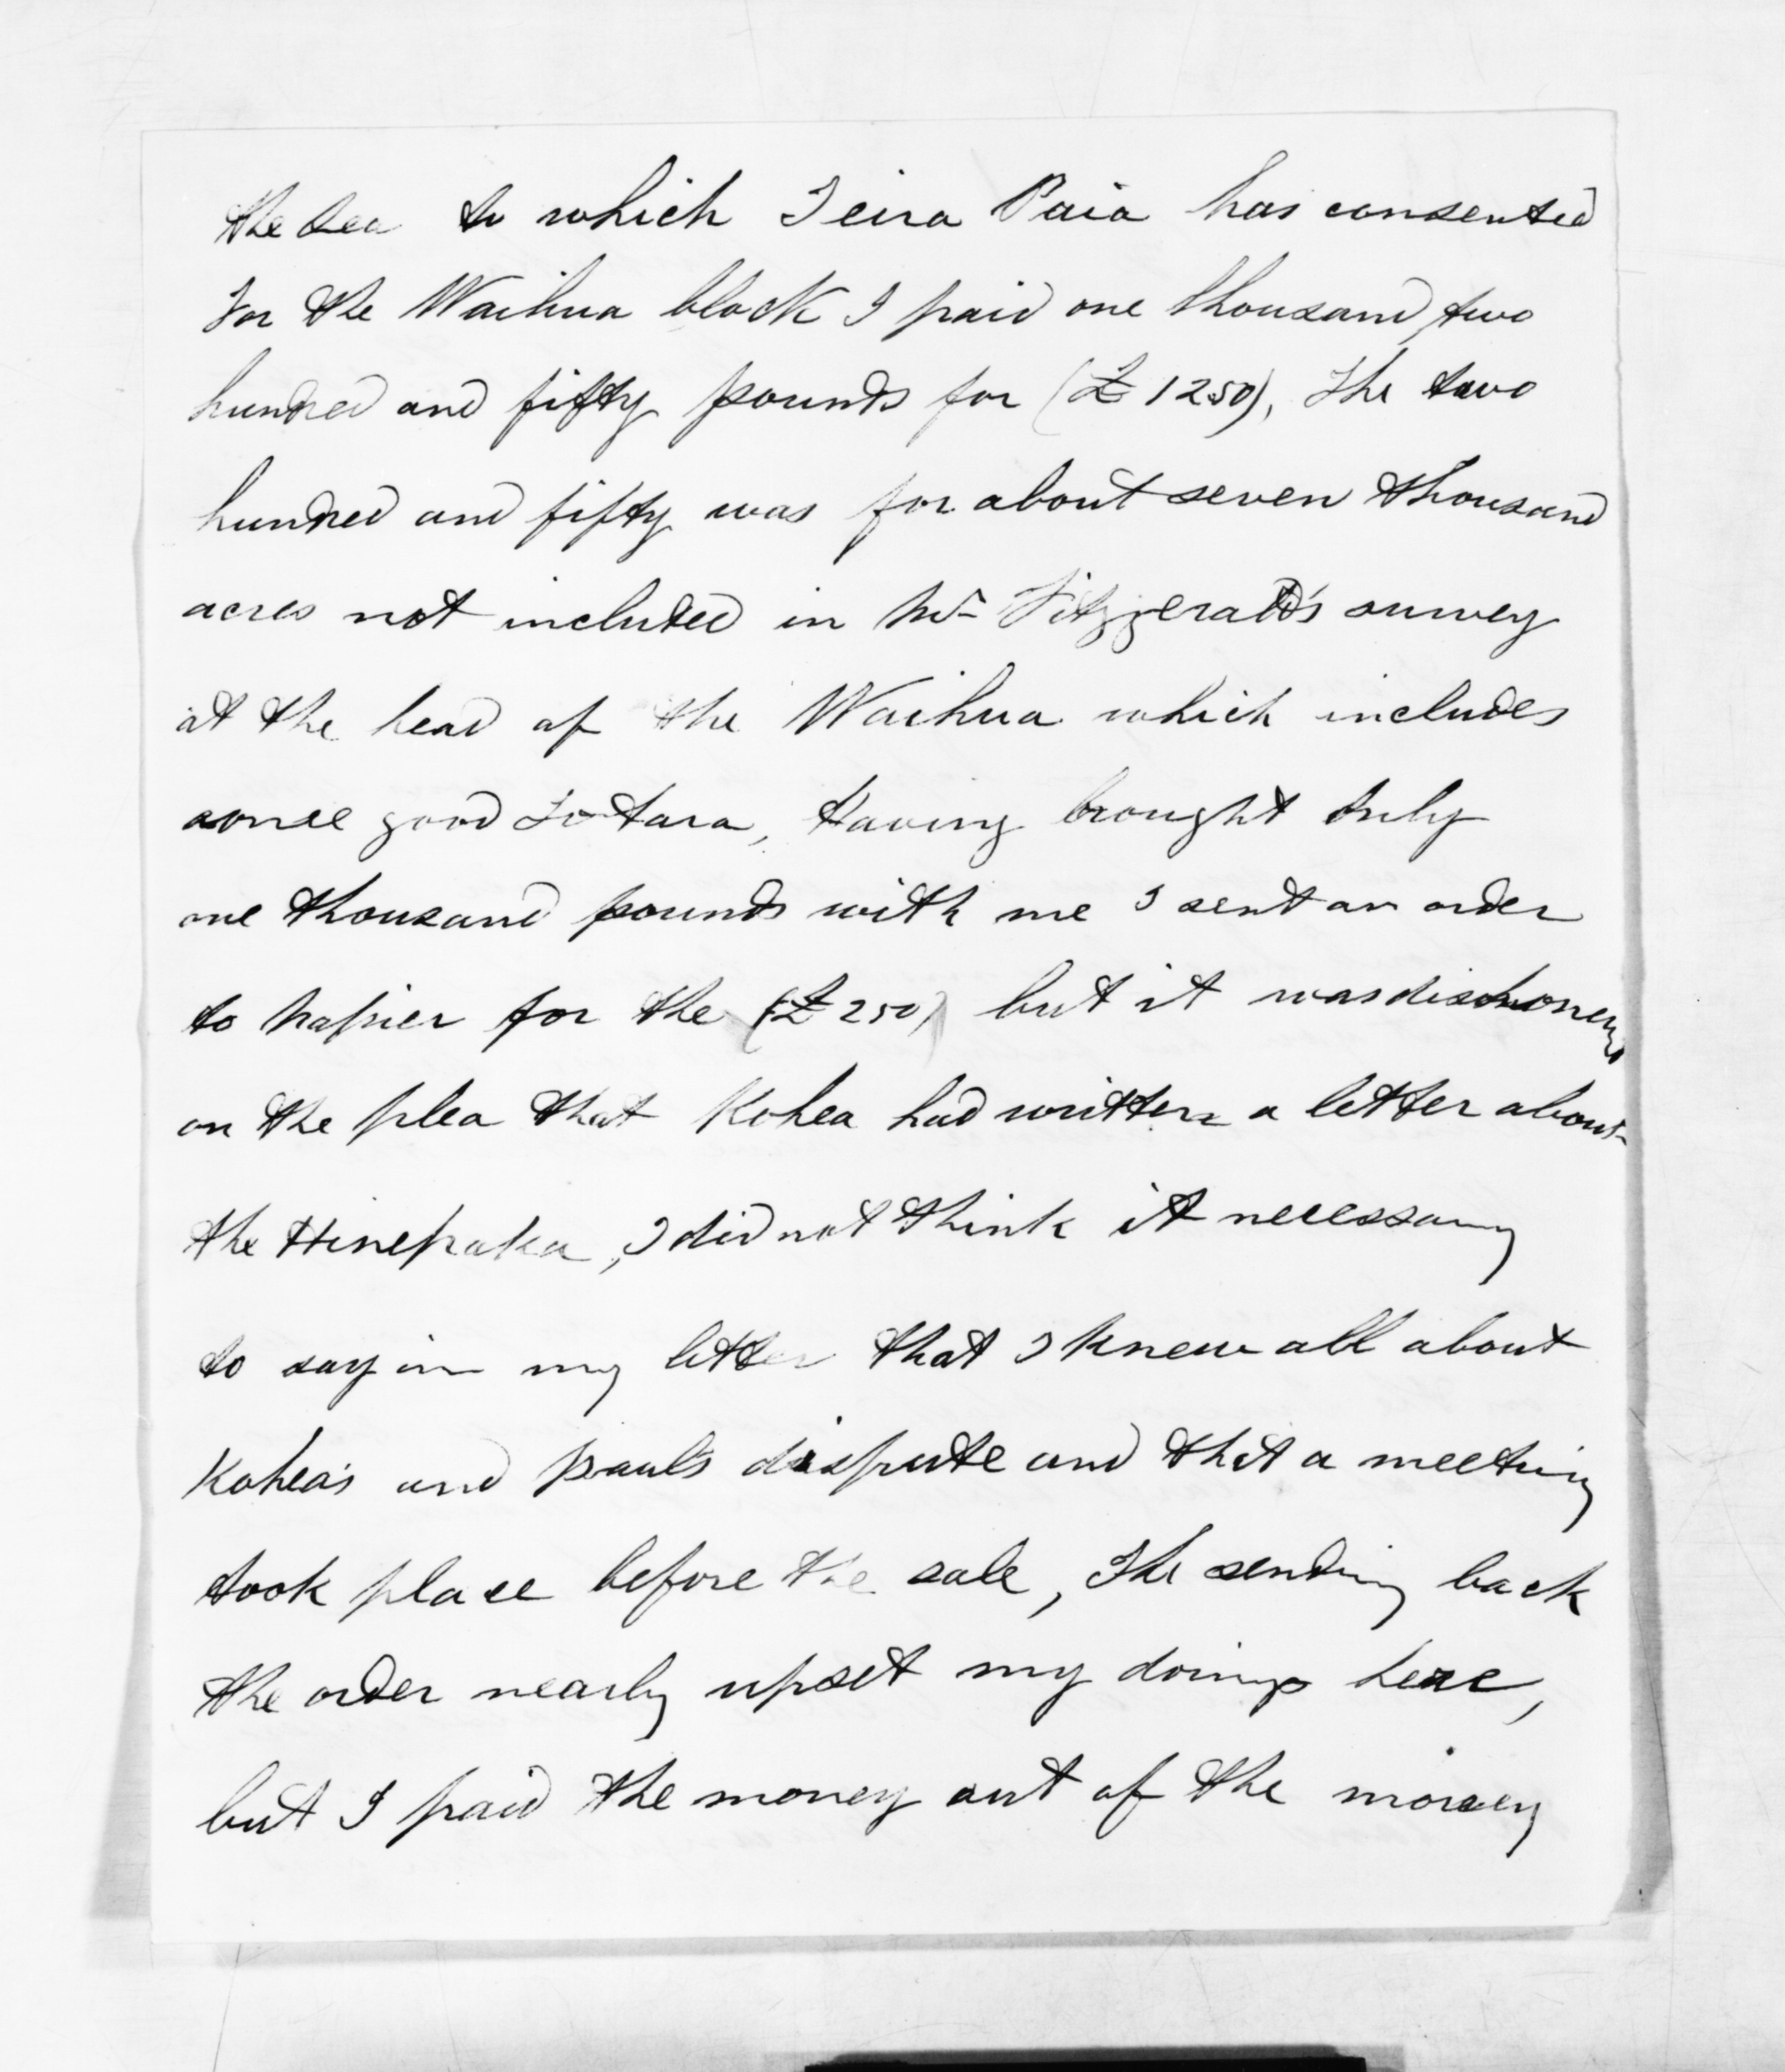 the sea to which Teira Paia has consented
for the Waihua block I paid one thousand two
hundred and fifty pounds for (£1250), The two
hundred and fifty was for about seven thousand
acres not included in Mr Fitzgerald's survey
at the head of the Waihua which includes
some good Totara, Having brought only
one thousand pounds with me I sent an order
to Napier for the (£250) but it was dishonored
on the plea that Kohea had written a letter about
the Hinepaka, I did not think it necessary
to say in my letter that I knew all about
Kohea's and paul's dispute and that a meeting
took place before the sale, The sending back
the order nearly upset my doings here,
but I paid the money out of the money